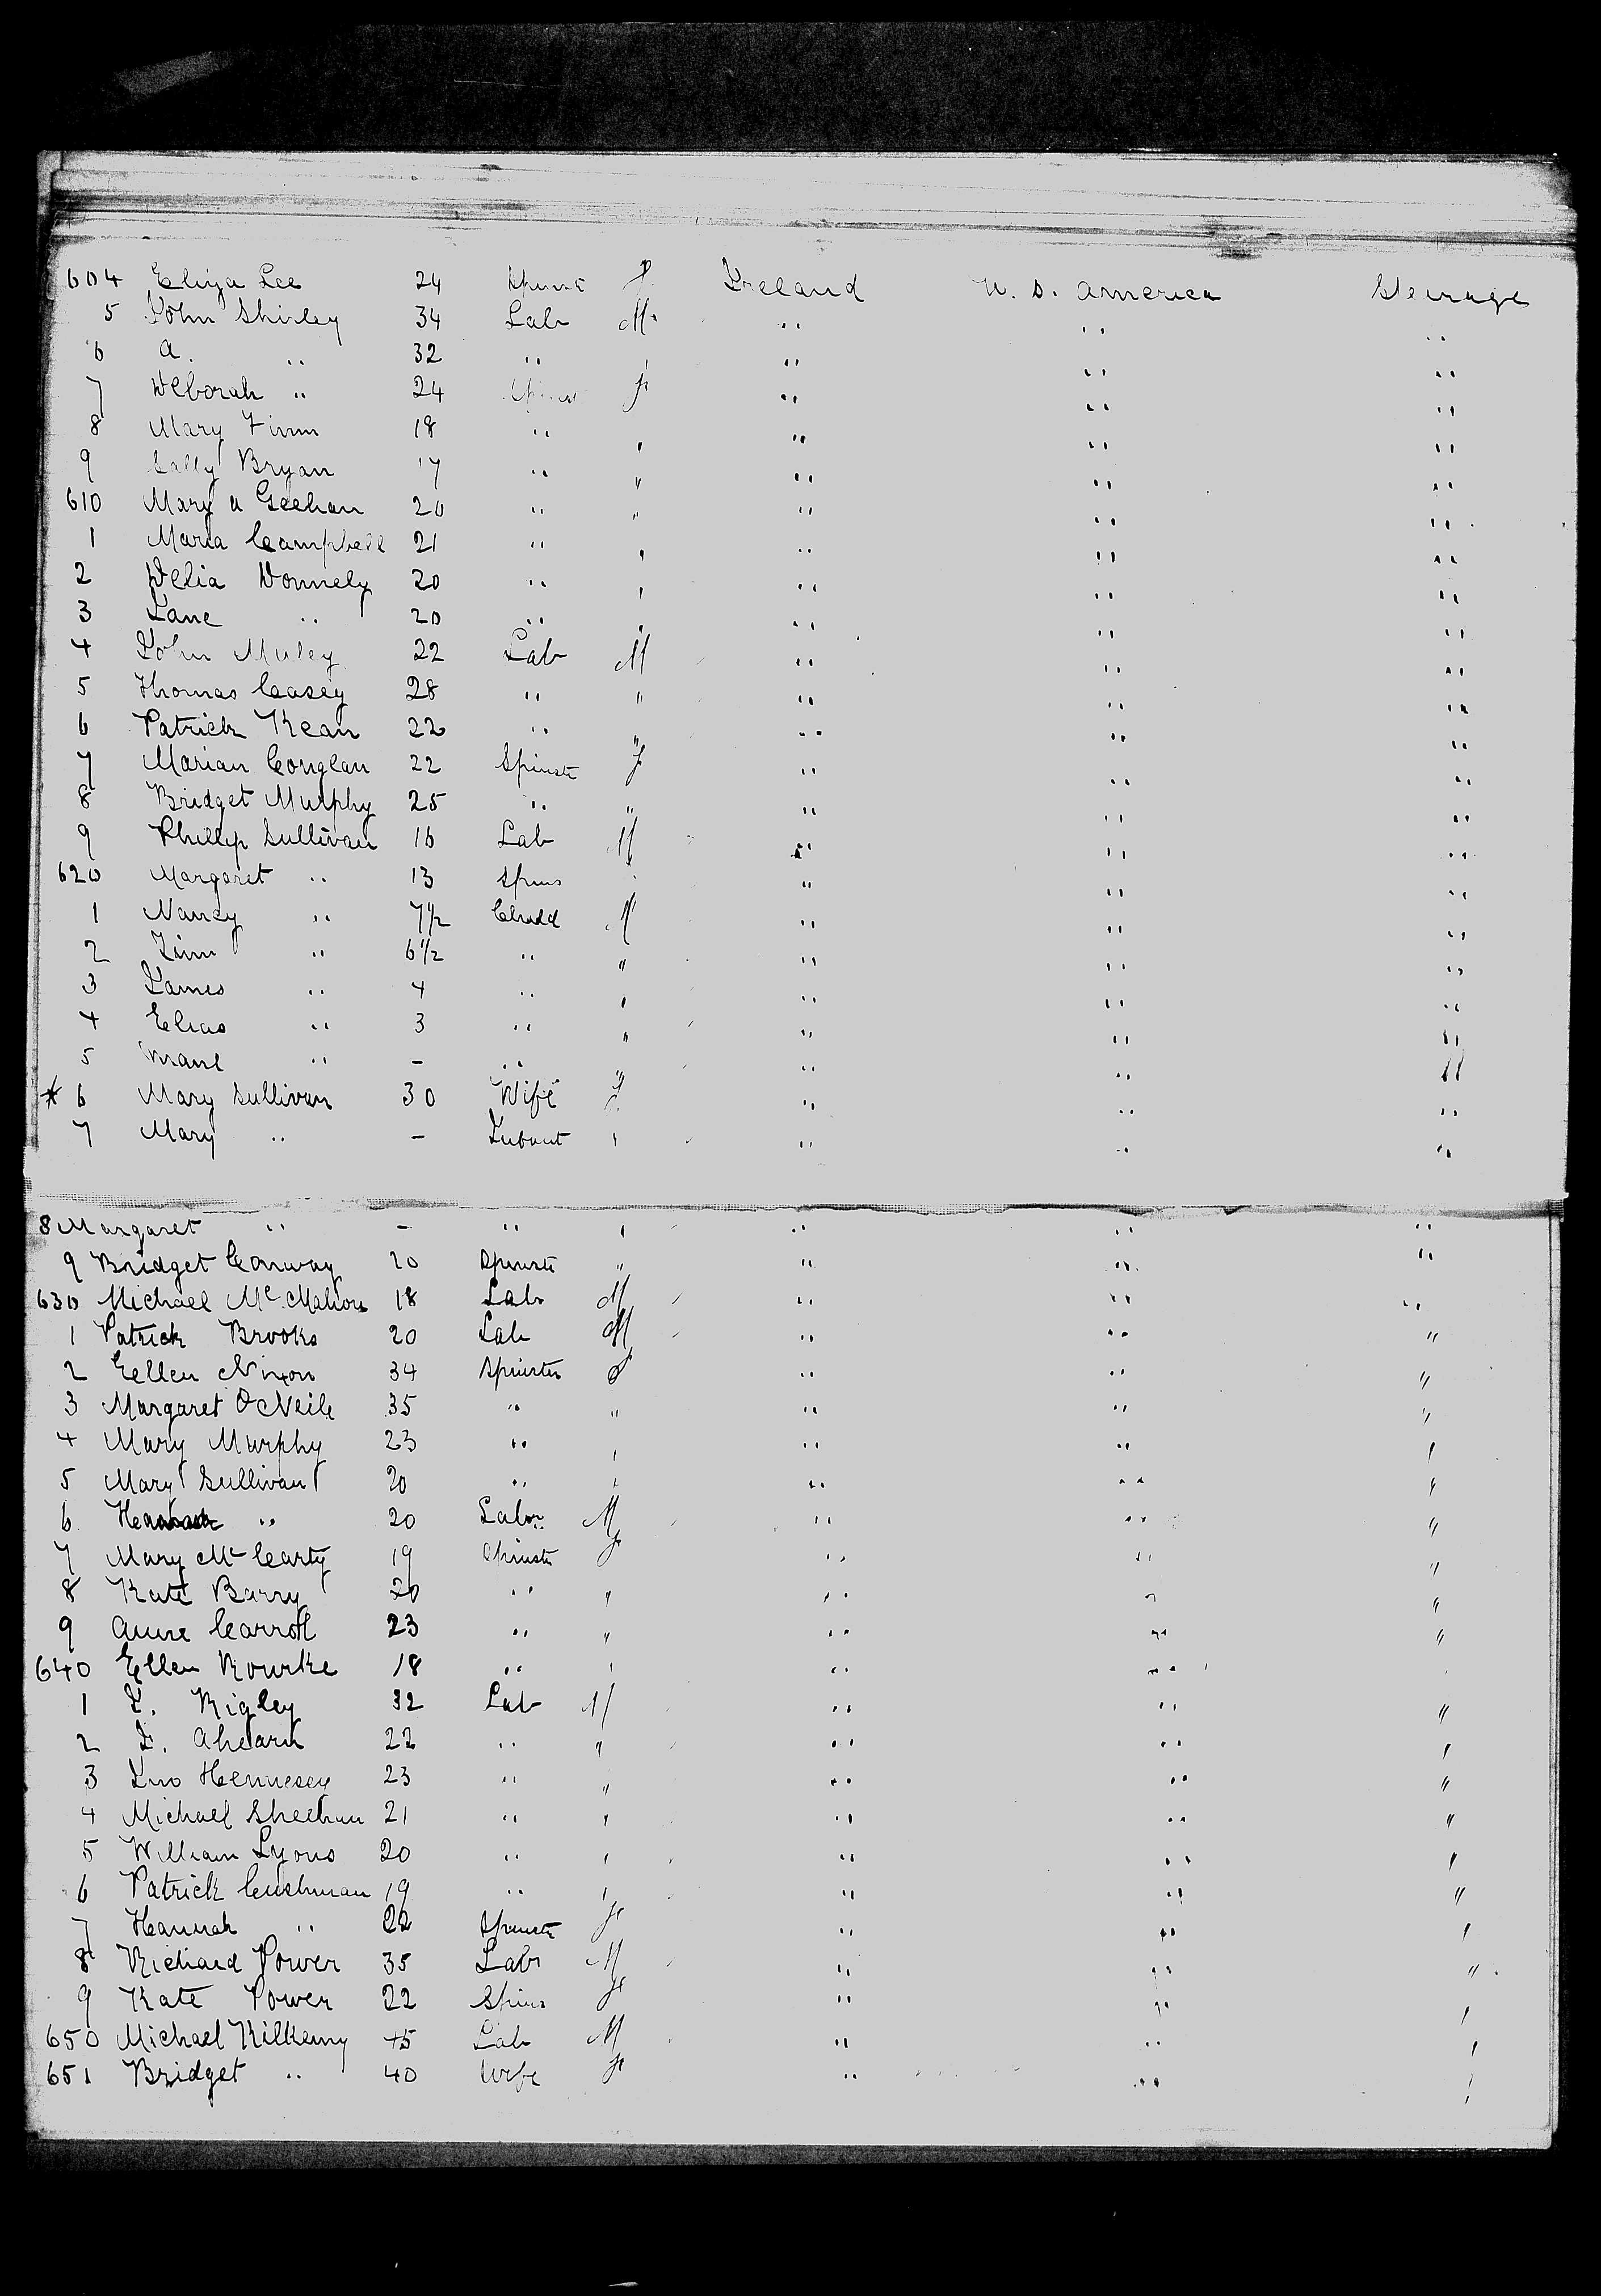 604 Eliza Lee 24 Spinste F Ireland U. S. America Steerage
5 John Shirley 34 Lab M " " "
6 A. " 32 " " " " "
7 Deborah " 24 Spinst F " " "
8 Mary Finn 18 " " " " "
9 Sally Bryan 17 " " " " "
610 Mary A Geehan 20 " " " " "
1 Maria Campbell 21 " " " " "
2 Delia Donnely 20 " " " " "
3 Jane " 20 " " " " "
4 John Muley 22 Lab M " " "
5 Thomas Casey 28 " " " " "
6 Patrick Kean 22 " " " " "
7 Marian Conglan 22 Spinste F " " "
8 Bridget Murphy 25 " " " " "
9 Phillip Sullivan 16 Lab M " " "
620 Margaret " 13 Spins " " "
1 Nancy " 7 1/2 Child M " " "
2 Jim " 6 1/2 " " " " "
3 James " 4 " " " " "
4 Elias " 3 " " " " "
5 " - " " " " "
* 6 Mary Sullivan 30 Wife F " " "
7 Mary " - Infant " " " "
8 Margaret " - " " " " "
9 Bridget Conway 20 Spinste " " " "
630 Michael McMahon 18 Lab M " " "
1 Patrick Brooks 20 Lab M " " "
2 Eellen Nixon 34 Spinster F " " "
3 Margaret O'Neile 35 " " " " "
4 Mary Murphy 23 " " " " "
5 Mary Sullivan 20 " " " " "
6 " 20 Labr M " " "
7 Mary McCarty 19 Spinste F " " "
8 Kate Barry 20 " " " " "
9 Anne Carroll 23 " " " " "
640 Ellen Rourke 18 " " " "
1 J. Rigley 32 Lab M " " "
2 J. Ahearn 22 " " " " "
3 Jno Hennesey 23 " " " " "
4 Michael Sheehan 21 " " " " "
5 William Lyons 20 " " " " "
6 Patrick Cushman 19 " " " " "
7 Hannah " 22 Spinste F " " "
8 Richard Power 35 Labr M " " "
9 Kate Power 22 Spins F " " "
650 Michael Kilkenny 45 Lab M " " "
651 Bridget " 40 Wife F " " "